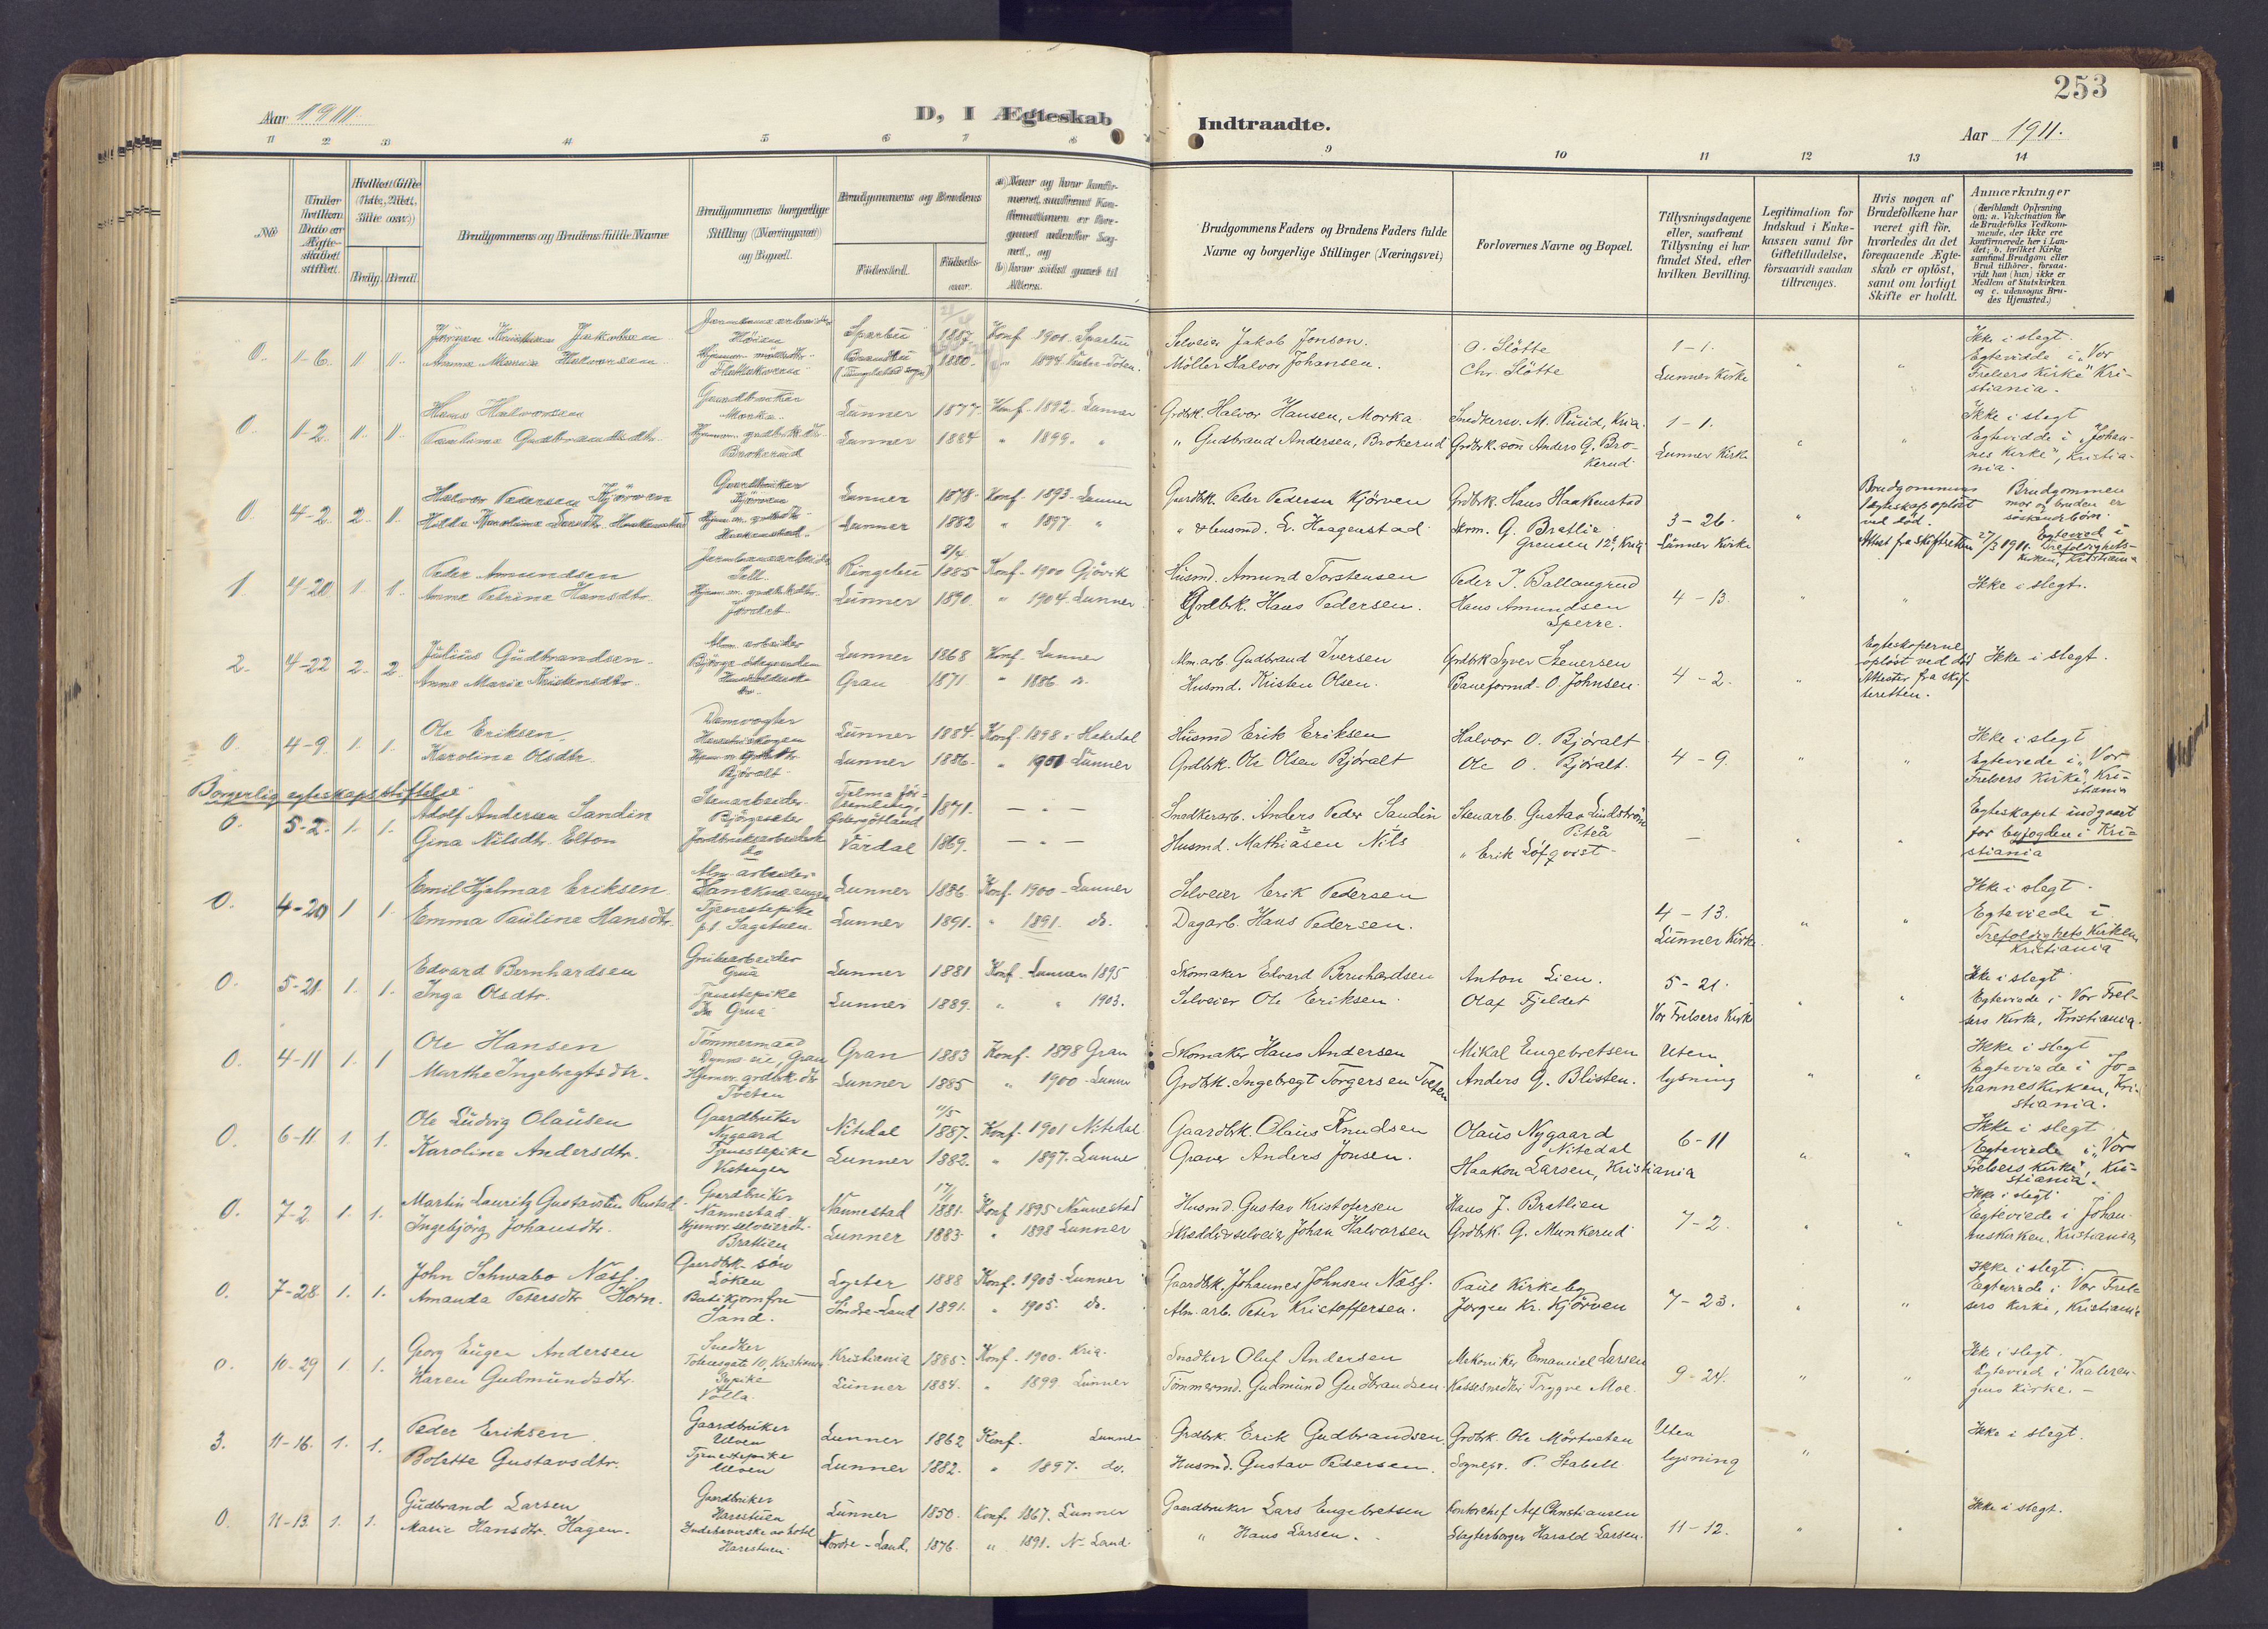 253
Aar 1911.
D, I Ægteskab
Indtraadte.
Aar 1911.
1 2 3 4 5 6 7 8
9 10 11 12 13 14
No
Under hvilken Dato er Ægteskabet stiftet.
Hvilket Gifte (1ste, 2det, 3die osv.)
Brudg. Brud.
Brudgommens og Brudens fulde Navne
Brudgommens borgerlige Stilling (Næringsvei) og Bopæl.
Brudgommens og Brudens
Fødested. Fødselsaar.
Brudgommens Faders og Brudens Faders fulde
Navne og borgerlige Stillinger (Næringsvei)
Forlovernes Navne og Bopæl.
Tillysningsdagene
eller, saafremt
Tillysning ei har
fundet Sted, efter
hvilken Bevilling.
Legitimation for
Indskud i Enke-
kassen samt for
Giftetilladelse,
forsaavidt saadan
tiltrænges.
Hvis nogen af
Brudefolkene har
været gift før,
hvorledes da det
foregaaende Ægte-
skab er opløst,
samt om lovligt
Skifte er holdt.
Anmærkninger
(deriblandt Oplysning
om: a. Vakcination for
de Brudefolks Vedkom-
mende, der ikke ere
konfirmerede her i Lan-
det; b. hvilket Kirke
samfund Brudgom eller
Brud tilhører, forsaa-
vidt han (hun) ikke er
Medlem af Statskirken
og c. udensogns Bru-
des Hjemsted.)
0. 1-6. 1. 1. Jakobsen Sparbu 1887. Konf. 1901. Sparbu
Anna Maria Halvorsen Brandbu 1880. " 1894 Vester-Toten.
Selveier Jakob Jonson. O. Slötte 1-1. Ikke i slegt.
Möller Halvor Johansen. Chr. Slötte Lunner Kirke " " Egteviede i "Vor
Frelsers Kirke" Kri-
stiania.
0. 1-2. 1. 1. Hans Halvorsen Gaardbruker Morka Lunner 1877. Konf. 1892. Lunner
Paulina Gudbrandsdtr. Brokerud Lunner 1884 " 1899. "
Grdbk. Halvor Hansen, Morka Snedkersv. M. Ruud, Kria. 1-1. Ikke i slegt
" Gudbrand Andersen, Brokerud Grdbrk. sön Anders G. Bro-
kerud Lunner Kirke " " Egteviede i "Johan-
nes Kirke", Kristia-
nia.
0. 4-2. 2. 1. Halvor Pedersen Kjörven Gaardbruker Kjörven Lunner 1878. Konf. 1893. Lunner
Hilda Karoline Larsdtr. Haakenstad Lunner 1882 " 1897. "
Gardbk. Peder Pedersen Kjörven Grdbrk. Hans Haakenstad
" & husmd. L. Haagenstad. Skrm. G. Bratlie
Grensen 12b, Kria 3-26. Lunner Kirke "
Brudgommens
Egteskap oplöst
ved död.
Attest fra Skifteretten 27/3 1911.
Brudgommens
mor og bruden er
söskendebörn.
Egteviede i
Trefoldighets-
kirken, Kristiania
1. 4-20 1. 1. Peder Amundsen Jernbanearbeider Ringebu 1885 Konf. 1900 Gjövik
Anne Petrine Hansdtr. Lunner 1890. " 1904. Lunner
Husmd. Amund Torstensen Peder J. Ballangrud
Grdbrk. Hans Pedersen. Hans Amundsen
Sperre. 4-13. " " Ikke i slegt.
2. 4-22 2. 2. Julius Gudbrandsen. Alm. arbeider Lunner 1868 Konf. Lunner
Anne Marie Kristensdtr. Gran 1871. " 1886. do.
Alm. arb. Gudbrand Iversen Grdbk Syver Stenersen
Husmd. Kristen Olsen. Baneformd. O. Johnsen. 4-2. "
Egteskaperne
oplöst ved död
Attester fra skif-
teretten.
Ikke i slegt.
0. 4-9. 1. 1. Ole Eriksen Damvogter Lunner 1884. Konf. 1898 i Hakedal
Karoline Olsdtr. Björalt Lunner 1886. " 1901 Lunner
Husmd Erik Eriksen Halvor O. Björalt
Grdbk. Ole Olsen Björalt Ole O. Björalt. 4-9. " "
Ikke i slegt
Egteviede i "Vor
Frelsers Kirke", Kri-
stiania
Borgerlig egteskapsstiftelse.
0. 5-2. 1. 1. Adolf Andersen Sandin Stenarbeider Östergötland 1871. — . —
Gina Nilsdtr. Elton do Vardal 1869. — . —
Snedkerarb. Anders Peder Sandin Stenarb. Gustav Lindström
Piteå
Husmd. Mathiasen Nils " Erik Löfqvist — " "
Egteskapet indgaaet
for byfogden i Kri-
stiania
0. 4-20 1 1. Emil Hjalmar Eriksen. Alm. arbeider Lunner 1886. Konf. 1900 - Lunner
Emma Pauline Hansdtr. Tjenestepike
p.t. Sagstuen. Lunner 1891. " 1891. do.
Selveier Erik Pedersen
Dagarb. Hans Pedersen. 4-13.
Lunner Kirke " "
Ikke i slegt.
Egteviede i
Trefoldighets Kirken
Kristiania
0. 5-21. 1. 1. Edvard Bernhardsen Grubearbeider
Grua Lunner 1881 Konf. Lunner 1895
Inga Olsdtr. Tjenestepike
Grua Lunner 1889. " " 1903.
Skomaker Edvard Bernhardsen Anton Lien. 5-21.
Selveier Ole Eriksen. Olaf Fjeldet Vor Frelsers Kirke " "
Ikke i slegt
Egteviede i Vor Frel-
sers Kirke, Kristiania.
0. 4-11 1. 1 Ole Hansen Tömmermand
Gran Gran 1883 Konf. 1898 Gran
Marthe Ingebregtsdtr. Hjemmev. grdbrk. dtr
Tveten Lunner 1885 " 1900 - Lunner
Skomaker Hans Andersen Mikal Engebretsen Uten
Grdbk. Ingebregt Torgersen Tveten Anders G. Blisten. lysning " "
Ikke i slegt
Egteviede i Jo-
hanneskirken, Kri-
stiania.
0. 6-11 1. 1. Ole Ludvig Olausen Gaardbruker
Nygaard Nitedal 1887. Konf. 1901 Nitedal
Karoline Andersdtr. Tjenestepike Lunner 1882. " 1897. Lunner
Gaardbk. Olaus Knudsen Olaus Nygaard
Nitedal 6-11
Graver Anders Jonsen. Haakon Larsen, Kristiania " "
Ikke i slegt
Egteviede i "Vor
Frelsers Kirke", Kri-
stiania.
0. 7-2 1. 1. Martin Lauritz Gustavsen Rustad. Gaardbruker
Nannestad Nannestad 1881. Konf 1895 Nannestad
Ingebjörg Johansdtr. Hjemmev. selveierdtr.
Bratlien Lunner 1883. " 1898 Lunner
Husmd. Gustav Kristofersen Hans J. Bratlien
Skrædder & selveier Johan Halvorsen Grdbrk. G. Munkerud 7-2. " "
Ikke i slegt
Egteviede i Johan-
neskirken. Kristiania
0. 7-28 1. 1. John Schwabo Næss. Gaardbk. sön
Löken Lyster 1888 Konf. 1903 - Lunner
Amanda Petersdtr Horn. Butikjomfru
Sand. Söndre-Land 1891. " 1905. do.
Gaardbk. Johannes Johnsen Næss. Paul Kirkeby
Alm. arb. Peter Kristoffersen. Jörgen Kr. Kjörven 7-23. " "
Ikke i slegt.
Egteviede i Vor Frel-
sers Kirke, Kristiania
0. 10-29 1. 1. Georg Eugen Andersen Snedker Kristiania 1885. Konf. 1900. Kria.
Karen Gudmundsdtr. Sypike
Volla Lunner 1884. " 1899. Lunner
Snedker Oluf Andersen Mekaniker Emanuel Larsen
Tömmermd. Gudmund Gudbrandsen Kassesnedker Trygve Moe. 9-24. " "
Ikke i slegt.
Egteviede i Vaaleren-
gens Kirke. —
3. 11-16. 1. 1. Peder Eriksen Gaardbruker
Ulven Lunner 1862 Konf. Lunner
Bolette Gustavsdtr. Tjenestepike
Ulven Lunner 1882. " 1897. do.
Grdbrk. Erik Gudbrandsen Grdbrk. Ole Mörtveten Uten
Husmd. Gustav Pedersen. Sognepr. P. Stabell lysning " "
Ikke i slegt.
0. 11-13. 1. 1. Gudbrand Larsen Gaardbruker
Harestuen Lunner 1850. Konf. 1867. Lunner
Marie Hansdtr. Hagen. Indehaverske av hotel
Harestuen. Nordre - Land. 1876. " 1891. N- Land.
Gaardbruker Lars Engebretsen Kontorchef Alf Christiansen
" Hans Larsen. Slagterborger Harald Larsen. 11-12. " "
Ikke i slegt.